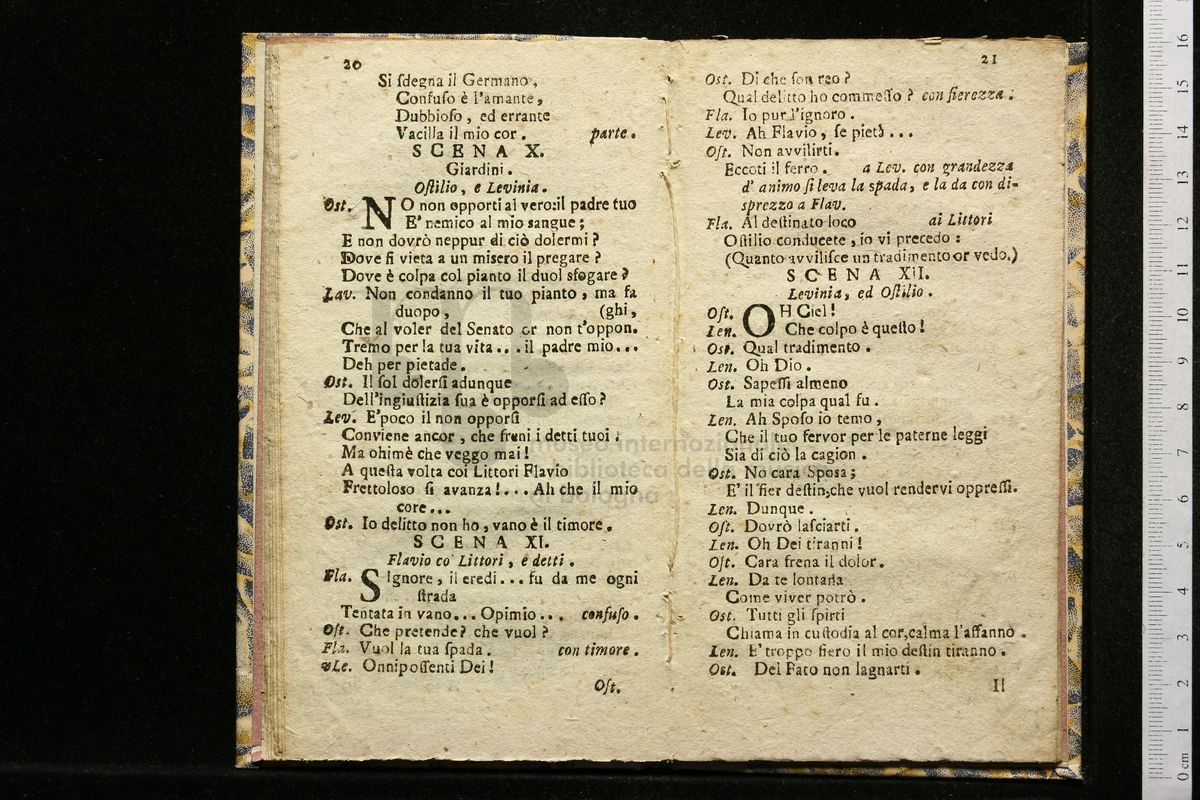 20
Si ſdegna il Germano,
Confuſo è l'amante,
Dubbioſo, ed errante
Vacilla il mio cor. parte.
SCENA X.
Giardini.
Oſtilio, e Levinia.
Ost. NO non opporti al vero: il padre tuo
E' nemico al mio sangue;
E non dovrò neppur di ciò dolermi?
Dove ſi vieta a un misero il pregare?
Dove è colpa col pianto il duol sfogare?
Lav. Non condanno il tuo pianto, ma fa
duopo, (ghi,
Che al voler del Senato or non t'oppon.
Tremo per la tua vita... il padre mio...
Deh per pietade.
Ost. Il ſol dolerſi adunque
Dell'ingiuſtizia ſua è opporſi ad eſſo?
Lev. E' poco il non opporſi
Conviene ancor, che freni i detti tuoi.
Ma ohimè che veggo mai!
A queſta volta coi Littori Flavio
Frettoloso ſi avanza!... Ah che il mio
core...
Ost. Io delitto non ho, vano è il timore.
SCENA XI.
Flavio co' Littori, e detti.
Fla. SIgnore, il credi... fu da me ogni
ſtrada
Tentata in vano... Opimio... confuſo.
Oſt. Che pretende? che vuol?
Fla. Vuol la tua ſpada. con timore.
Le. Onnipoſſenti Dei!
Oſt.
21
Ost. Di che ſon reo?
Qual delitto ho commeſſo? con fierezza.
Fla. Io pur l'ignoro.
Lev. Ah Flavio, ſe pietà...
Oſt. Non avvilirti.
Eccoti il ferro. a Lev. con grandezza
d' animo ſi leva la spada, e la da con di-
sprezzo a Flav.
Fla. Al deſtinato loco ai Littori
Oſtilio conducete, io vi precedo:
(Quanto avviliſce un tradimento or vedo.)
SCENA XII.
Levinia, ed Oſtilio.
Oſt. OH Ciel!
Len. Che colpo è queſto!
Ost. Qual tradimento.
Len. Oh Dio.
Ost. Sapeſſi almeno
La mia colpa qual fu.
Len. Ah Spoſo io temo,
Che il tuo fervor per le paterne leggi
Sia di ciò la cagion.
Ost. No cara Sposa;
E' il fier deſtin, che vuol rendervi oppreſſi.
Len. Dunque.
Oſt. Dovrò laſciarti.
Len. Oh Dei tiranni!
Oſt. Cara frena il dolor.
Len. Da te lontana
Come viver potrò.
Ost. Tutti gli ſpirti
Chiama in cuſtodia al cor, calma l'affanno.
Len. E' troppo fiero il mio deſtin tiranno.
Ost. Del Fato non lagnarti.
Il
museo internazionale
biblioteca della musica
bologna